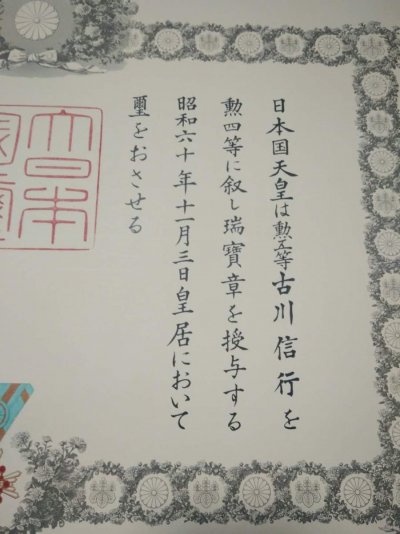 日本国天皇は勲五等古川信行を
勲四等に叙し瑞寶章を授与する
昭和六十年十一月三日皇居において
璽をおさせる
大日本
國璽